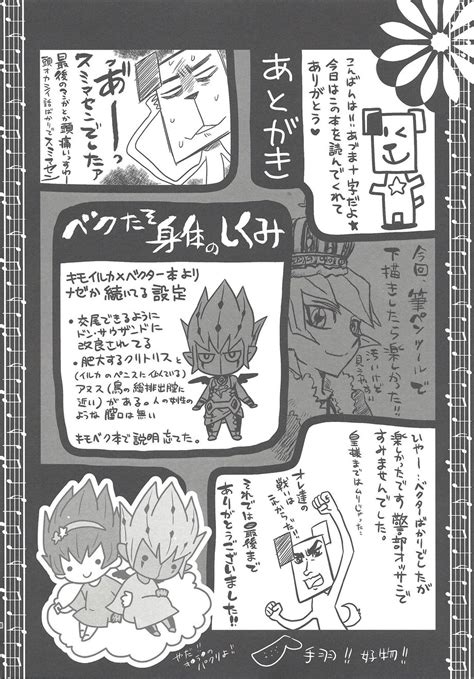 あとがき
こんばんはーいあづま十字だよ★
今日はこの本を読んでくれて
ありがとう♥
あ"ーーっ
スミマセンでしたァ
最後のマンガとか頭痛いっすねー
頭オカシイ話ばかりでスミマセン
今回、筆ペンツールで
下描きしたら楽しかった!!
ベクたそ身体のしくみ
キモイルカ×ベクター本より
ナゼか続いてる設定
・交尾できるように
ドン・サウザンドに
改良されてる
・肥大するクリトリスと
(イルカのペニスに似ている)
アヌス(鳥の総排出腔に
近い)がある。人の女性の
ような膣口は無い
キモベク本で説明忘れてた。
いやー…ベクターばかりでしたが
楽しかったです 警部オッサンで
すみませんでした。
オレ達の
戦いは
これからだ!!
それでは最後まで
ありがとうございました!!
手羽!! 好物!!